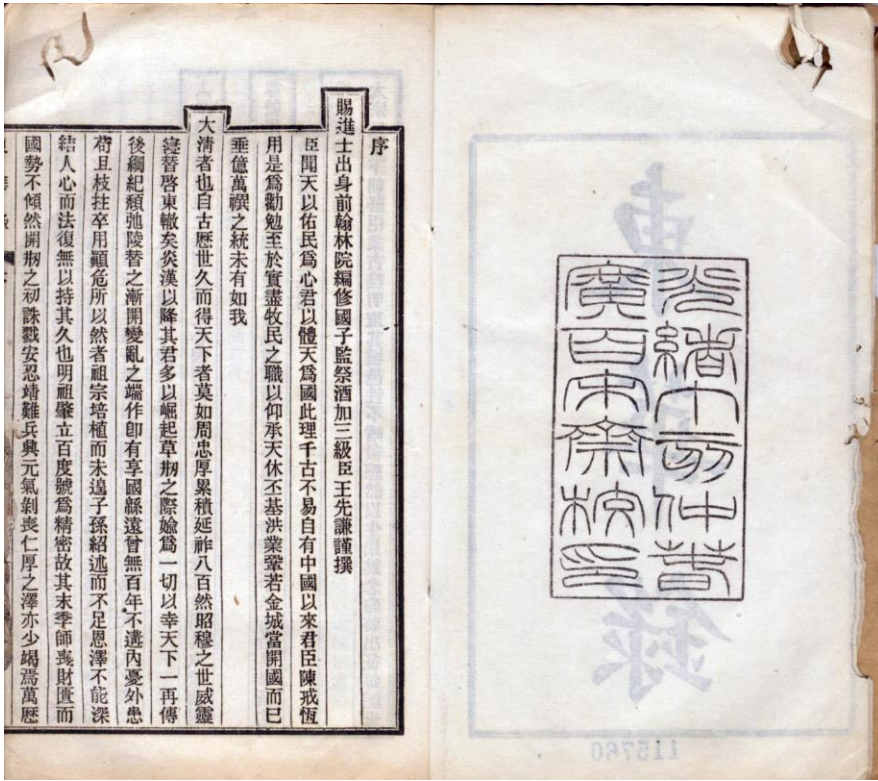 光緒丁亥仲春
廣百宋齋校印
序
賜進士出身前翰林院編修國子監祭酒加三級臣王先謙謹撰
臣聞天以佑民爲心君以體天爲國此理千古不易自有中國以來君臣陳戒恆
用是爲勸勉至於實盡牧民之職以仰承天休丕基洪業鞏若金城當開國而已
垂億萬禩之統未有如我
大清者也自古歷世久而得天下者莫如周忠厚累積延祚八百然昭穆之世威靈
寖替啓東轍矣炎漢以降其君多以崛起草剏之際媮爲一切以幸天下一再傳
後綱紀頹弛陵替之漸開變亂之端作卽有享國緜遠曾無百年不遘內憂外患
苟且枝拄卒用顚危所以然者祖宗培植而未遑子孫紹述而不足恩澤不能深
結人心而法復無以持其久也明祖肇立百度號爲精密故其末季師喪財匱而
國勢不傾然開剏之初誅戮安忍靖難兵興元氣剝喪仁厚之澤亦少竭焉萬歷